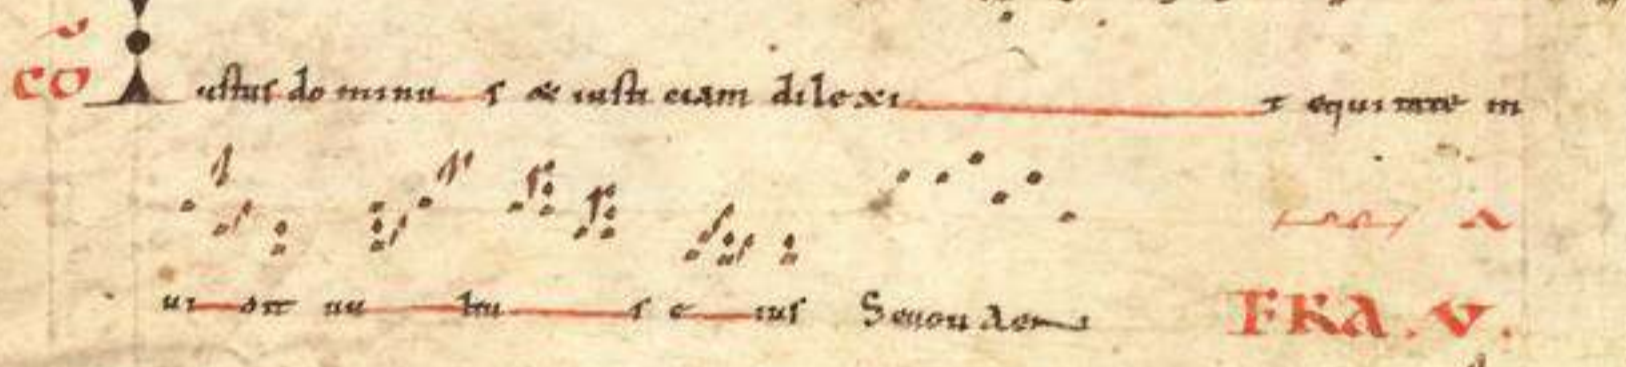 CO Iustus dominus & iusticiam dilexit equitate m
uidit uultus eius Seuouaen FRA. V.